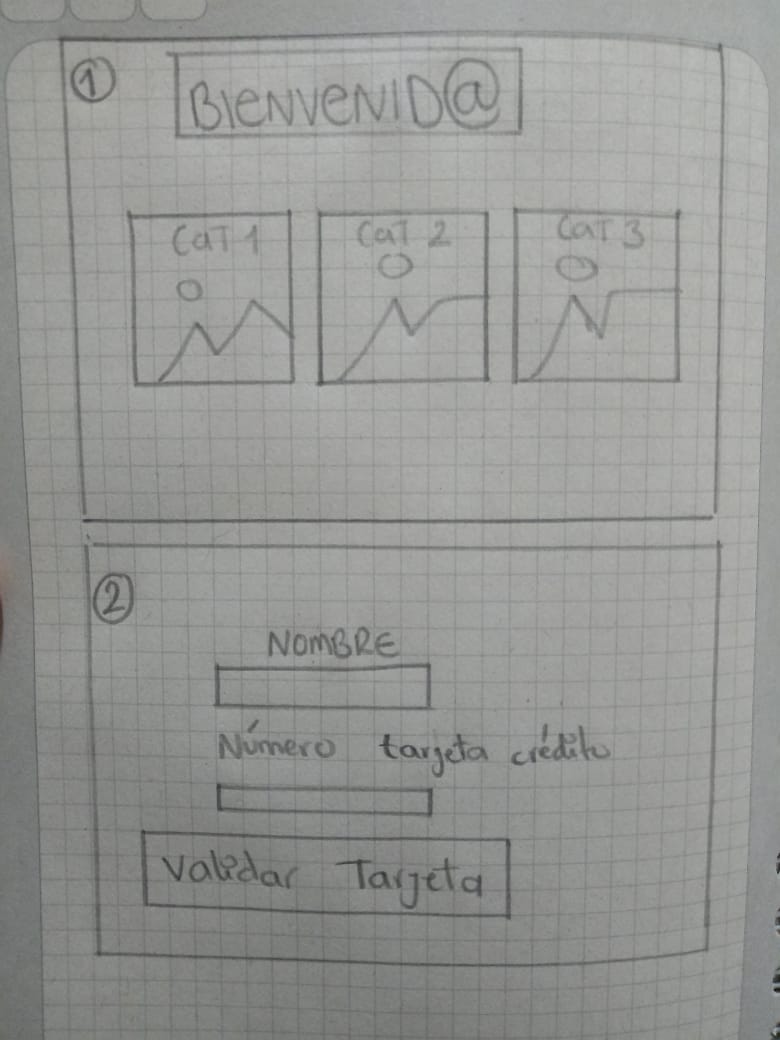 1
BIENVENID@
CAT 1
CAT 2
CAT 3
2
NOMBRE
Número tarjeta crédito
Validar Tarjeta